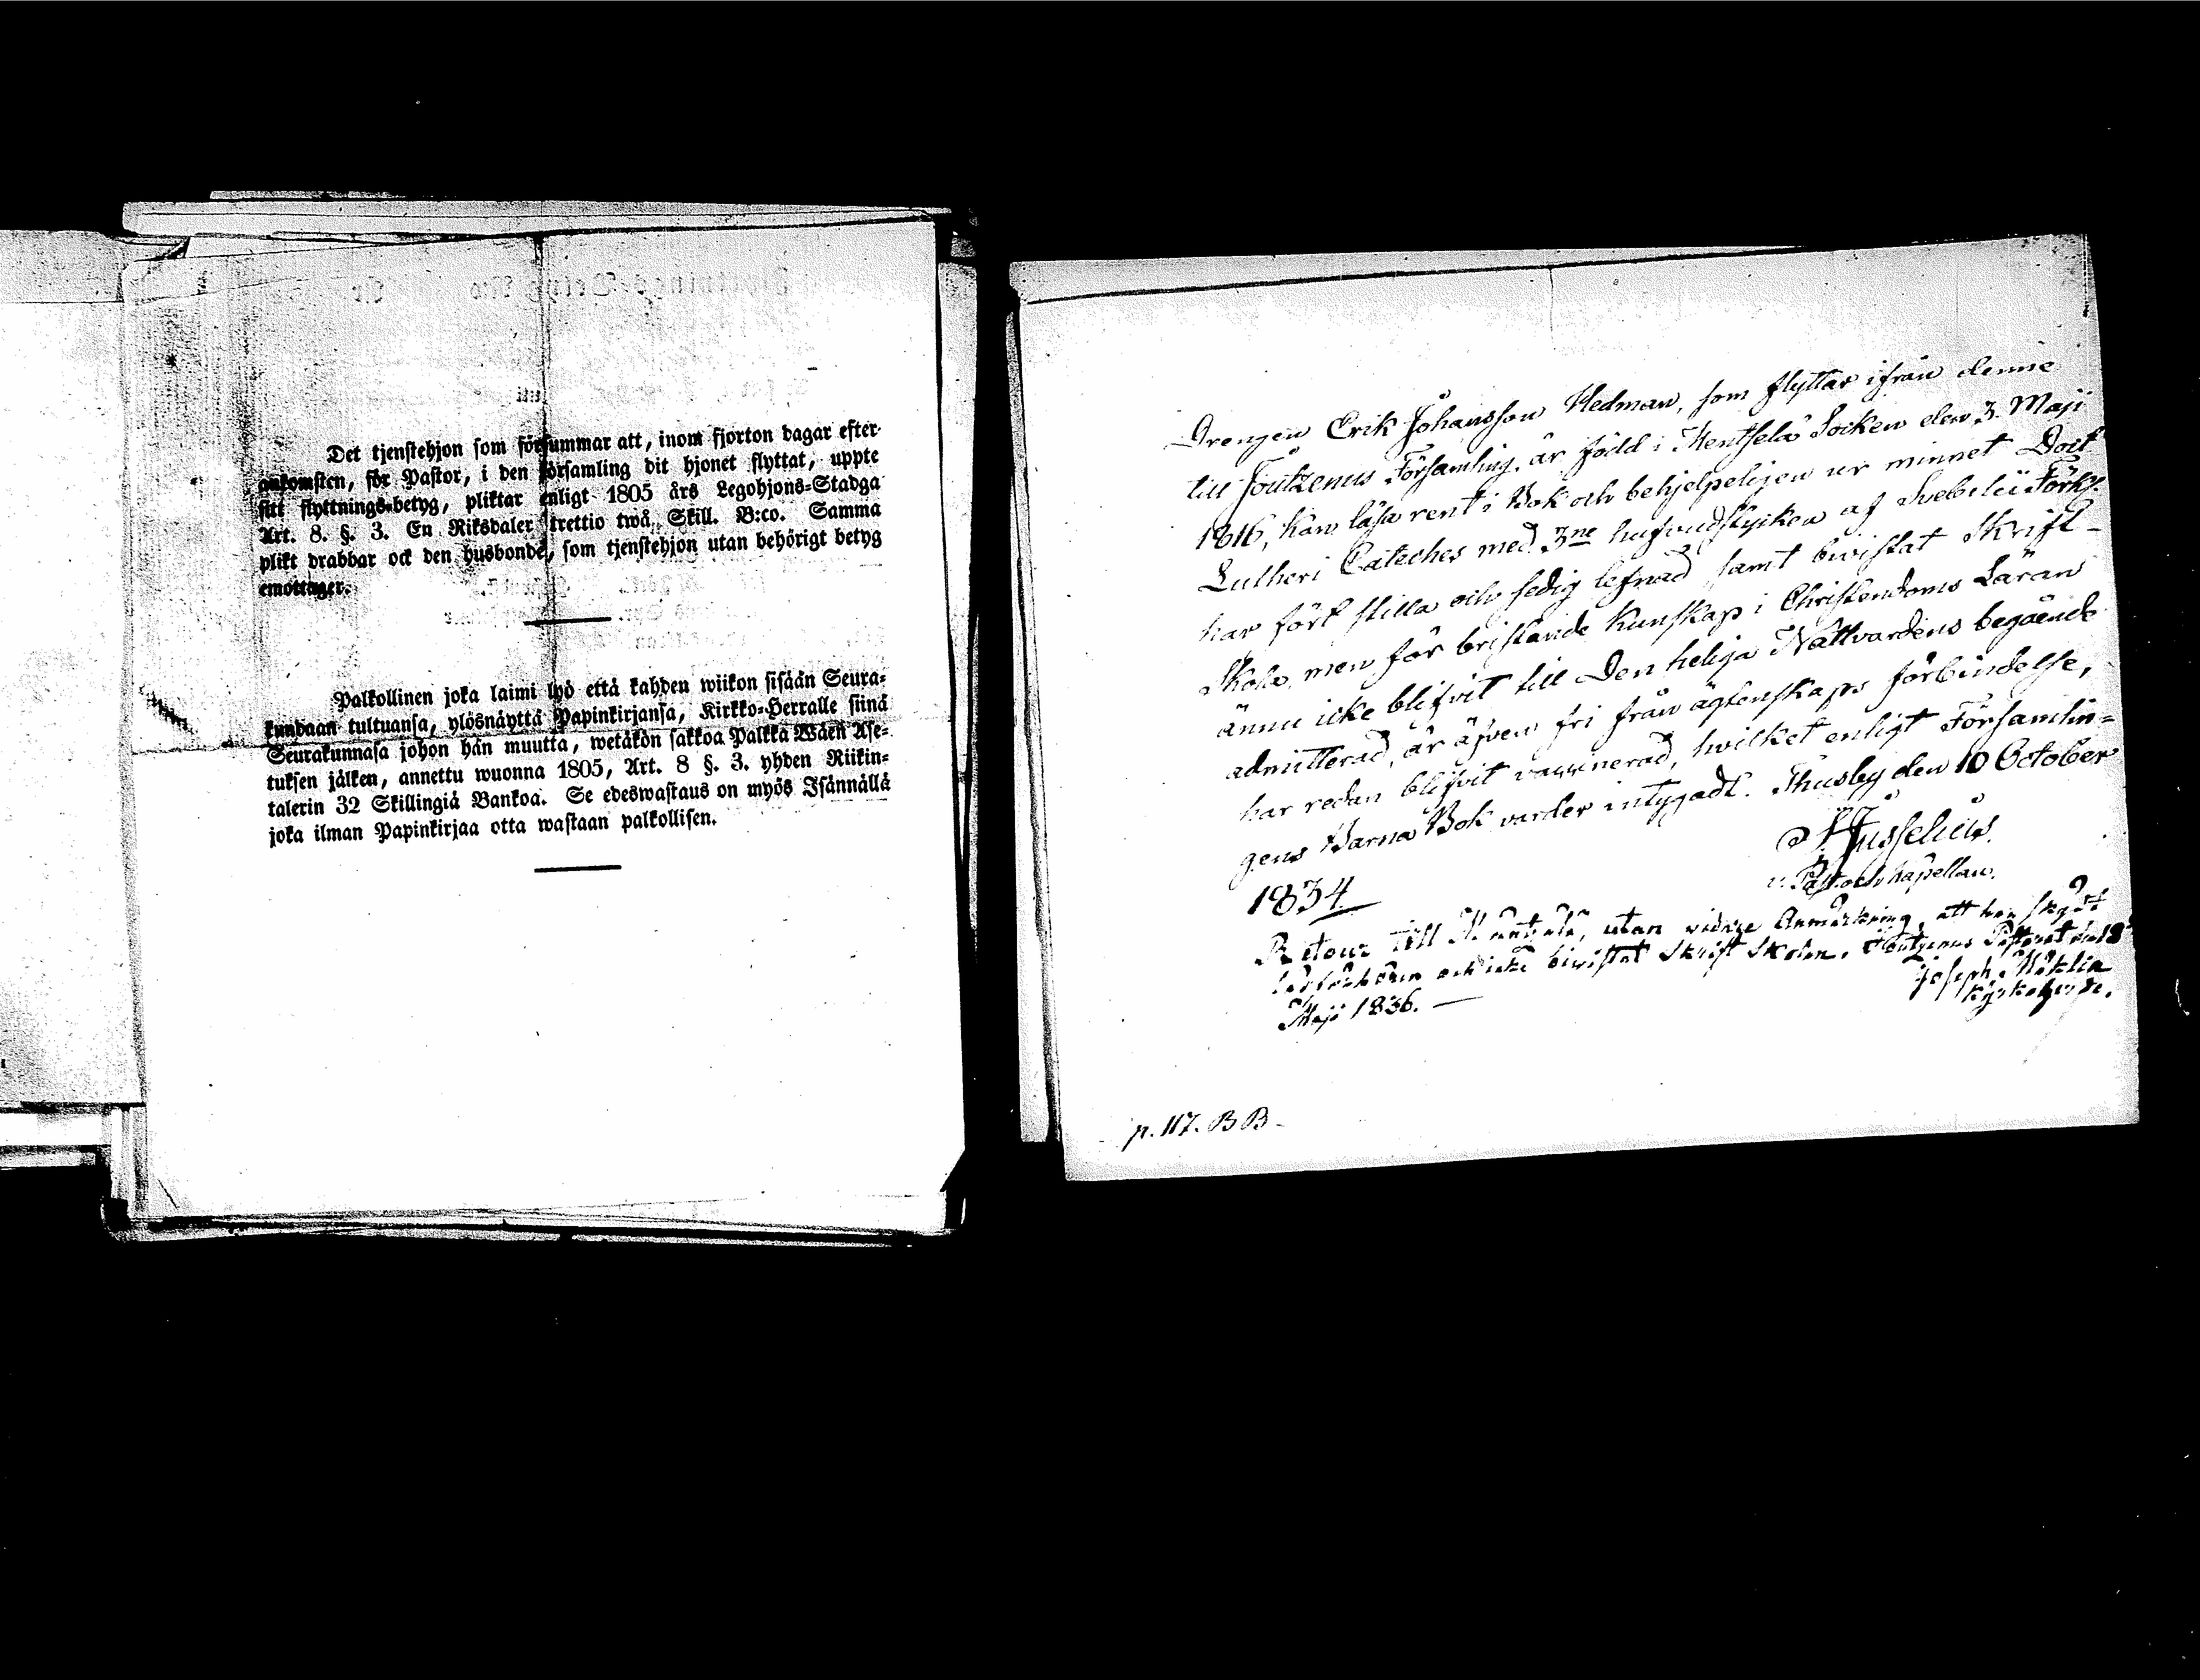 Det tjenstehjon som försummar att, inom fjorton dagar efter
ankomsten, för Pastor, i den församling dit hjonet flyttat, uppte
sitt flyttnings-betyg, pliktar enligt 1805 års Legohjons-Stadga
Art. 8. §. 3. En Riksdaler trettio twå Skill. B:co. Samma
plikt drabbar ock den husbonde, som tjenstehjon utan behörigt betyg
emottager.
Palkollinen joka laimi lyö että kahden wiikon sisään Seura-
kundaan tultuansa, ylösnäyttä Papinkirjansa, Kirkko-Herralle siinä
Seurakunnasa johon hän muutta, wetäkön sakkoa Palkka Wäen Ase-
tuksen jälken, annettu wuonna 1805, Art. 8 §. 3. yhden Riikin-
talerin 32 Skillingiä Bankoa. Se edeswastaus on myös Isännällä
joka ilman Papinkirjaa otta wastaan palkollisen.
Drengen Erik Johansson Hedman, som flyttar ifrån denne
till Joutzenus Församling, är född i Mentselä Socken den 3. Maji
1816, kan läsa rent i Bok och behjelpeligen ur minnet Doct
Lutheri Cateches med 3ne hufvudstycken af Svebelii Förkl.
har fört stilla och sedig lefnad samt bivistat Skrift-
Skola, men för bristande kunskap i Christendoms Läran
ännu icke blifvit till Den heliga Nattvardens begående
admitterad, är äfven fri från ägtenskaps förbindelse,
har redan blifvit vaccinerad, hvilket enligt Församlin=
gens Barna Bok varder intygadt. Thusby den 10 October
1834
v. Past. och kapellan.
Retour till Mäntzälä, utan vidare Anmärkning, att han
och icke bivistat Skrift Skolan. Joutzenus Pastorat den 18
Maji 1836. —
Joseph
Kyrkoherde.
p. 117. B B.